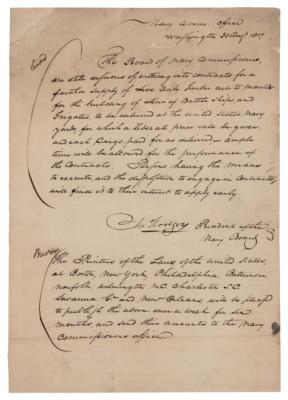 Navy Comm. office
Washington 30 Augt 1817
The Board of Navy Commissioners,
are desirous of entering into contracts for a
farther supply of Live Oak timber cut to moulds
for the building of Line of Battle Ships and
Frigates, to be delivered at the United States Navy
yards, for which a liberal price will be given
and each Cargo paid for as delivered - ample
time will be allowed for the performance of
the contracts. Persons having the means
to execute, and the disposition to engage in contracts,
will find it to their interest to apply early.
Jno Rodgers President of the
Navy Board
The Printers of the Laws of the United States,
at Boston, New York, Philadelphia, Baltimore
Norfolk Wilmington N.C. Charleston S.C.
Savanna Ga and New Orleans, will be pleased
to publish the above once a week for six
months, and send their accounts to the Navy
Commissioners office